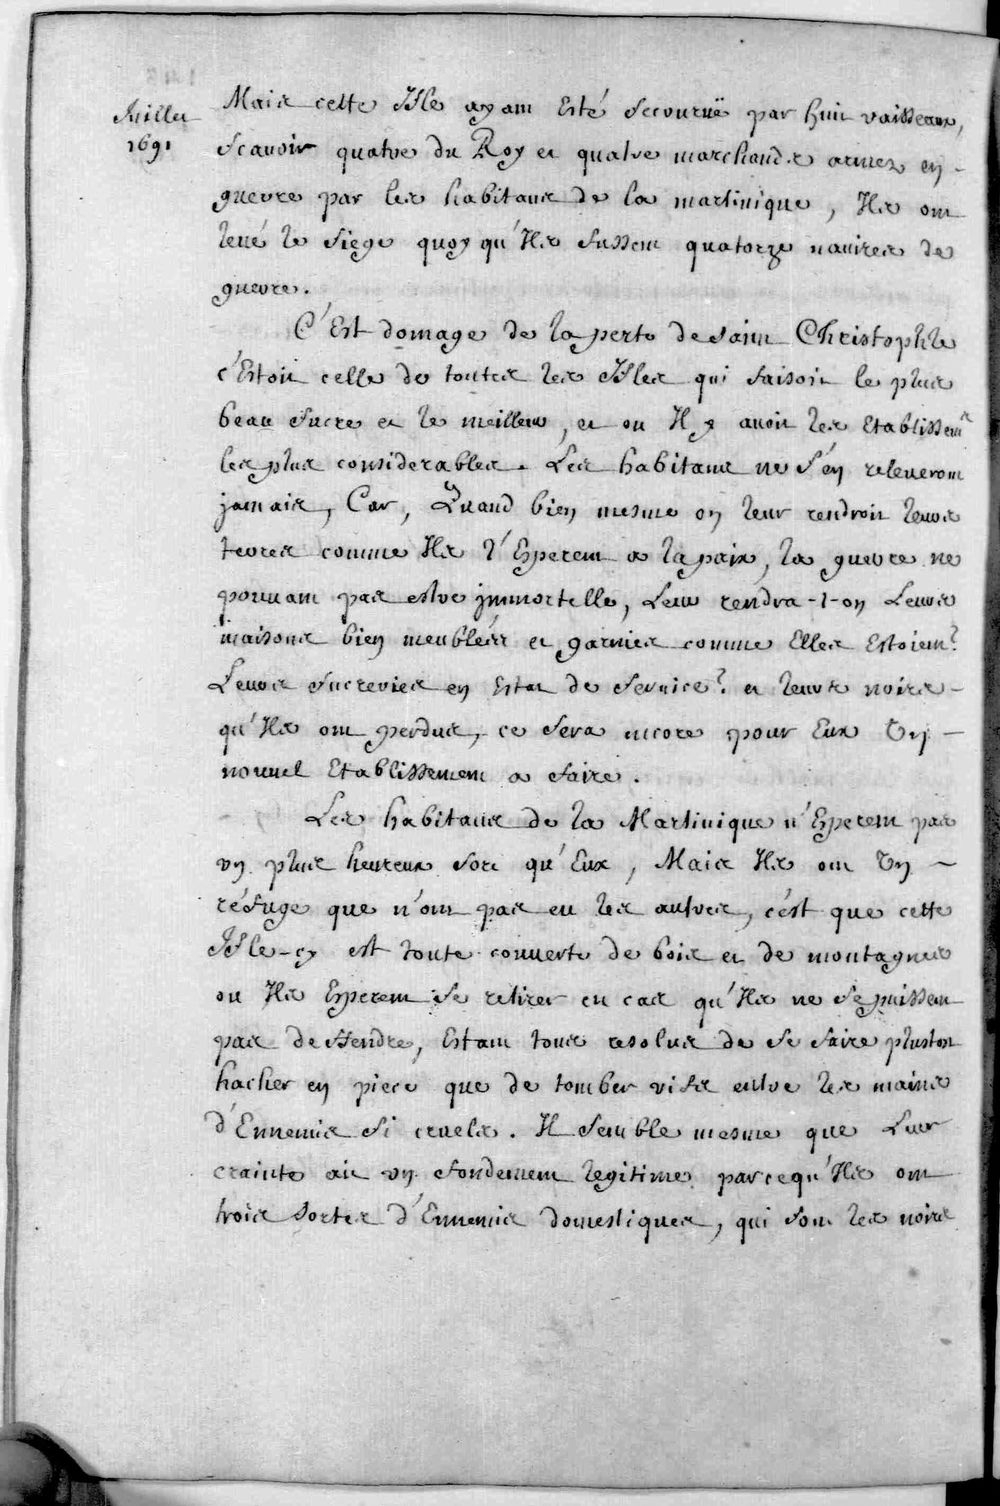 Juillet
1691
Mais cette Isle ayant Esté secouruë par huit vaisseaux,
scauoir quatre du Roy et quatre marchands armez en
guerre par les habitans de la martinique, Ils ont
leué le siege quoy qu'Ils fussent quatorze nauires de
guerre.
C'Est domage de la perte de saint Christophle
c'Estoit celle de toutes les Isles qui faisoit le plus
beau sucre et le meilleur, et ou Il y auoit les Etablissemts
les plus considerables. Les habitans ne s'en releueront
jamais, Car, Quand bien mesme on leur rendroit leurs
terres comme Ils l'Esperent a la paix, la guerre ne
pouuant pas estre jmmortelle, Leur rendra-t-on Leurs
maisons bien meublées et garnies comme Elles Estoient?
Leurs sucreries en Estat de seruice? et leurs noirs
qu'Ils ont perdus, ce sera encore pour Eux Un
nouuel Etablissement a faire.
Les habitans de la Martinique n'Esperent pas
vn plus heureux sort qu'Eux, Mais Ils ont Un
réfuge que n'ont pas eu les autres, c'est que cette
Isle-cy est toute couuerte de bois et de montagnes
ou Ils Esperent se retirer en cas qu'Ils ne se puissent
pas deffendre, Estant tous resolus de se faire plustost
hacher en piece que de tomber vifs entre les mains
d'Ennemis si cruels. Il semble mesme que Leur
crainte ait vn fondement legitime parcequ'Ils ont
trois sortes d'Ennemis domestiques, qui sont les noirs